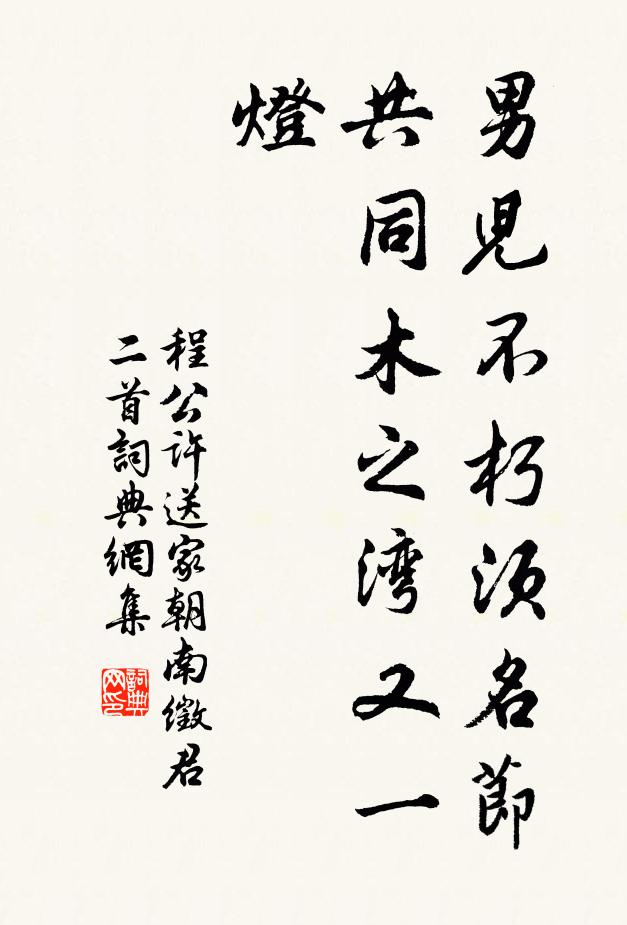 男児不朽須名節
共同木之湾又一
燈
程公許送家朝南徵君
二首詞典網集
詞典
网印